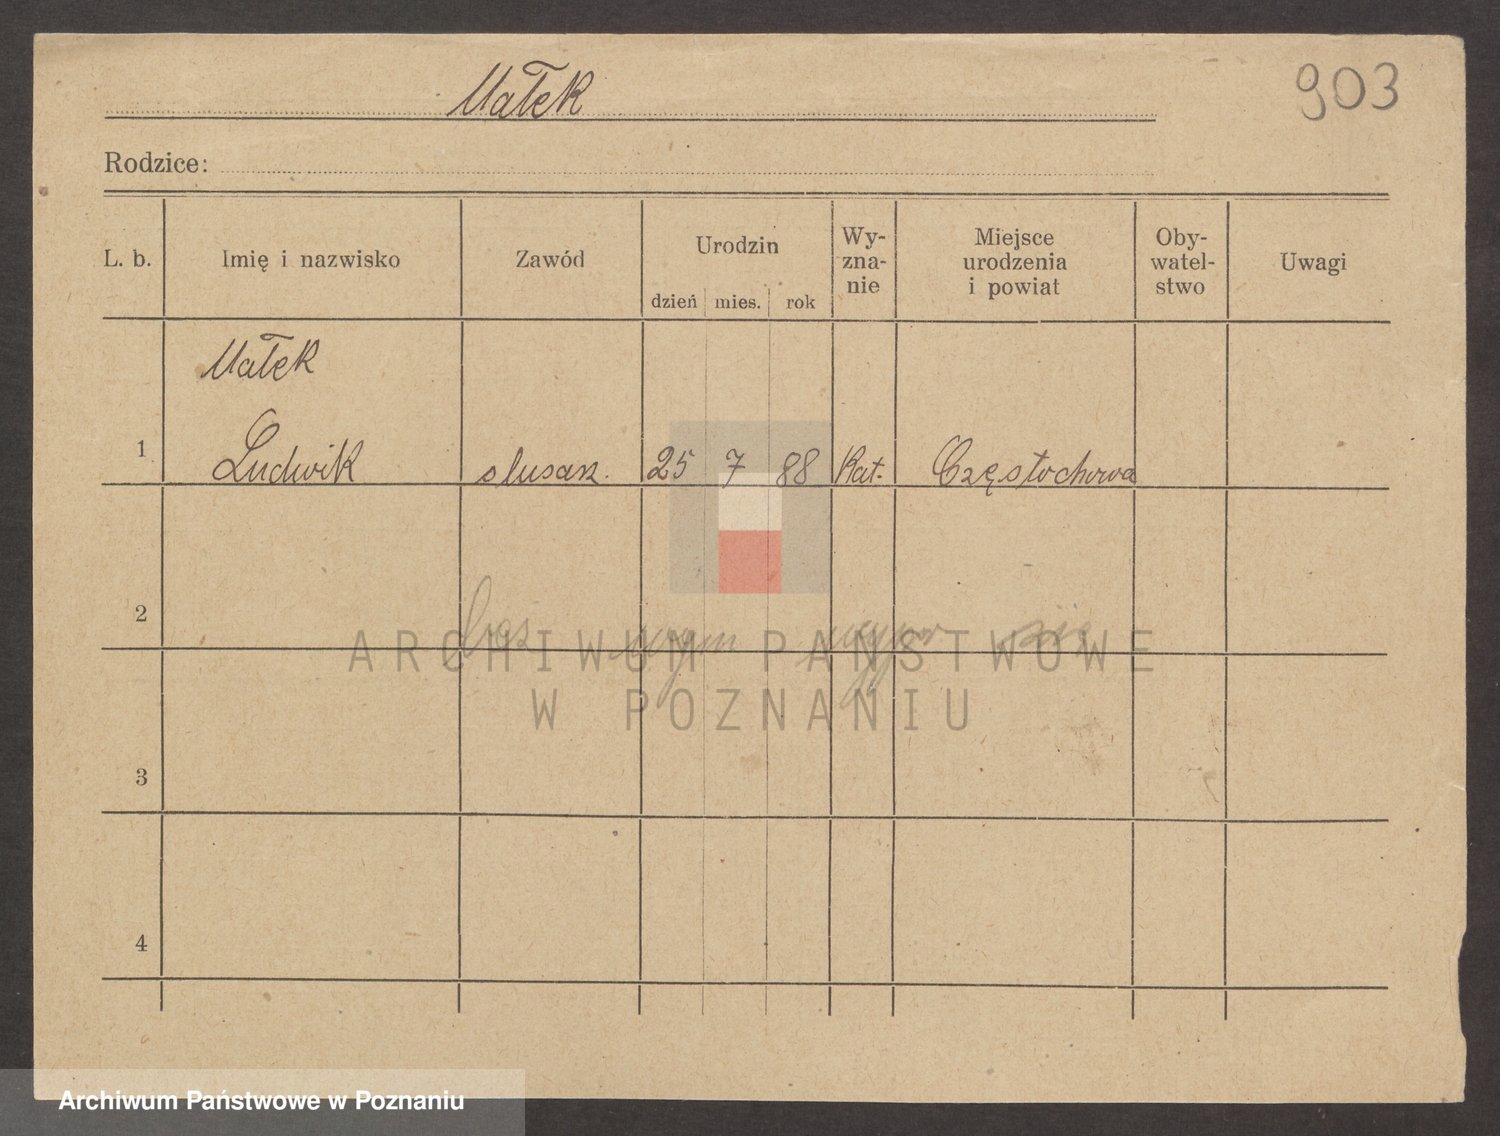 Małek
903
Rodzice:
L. b. Imię i nazwisko Zawód Urodzin dzień mies. rok Wy-zna-nie Miejsce urodzenia i powiat Oby-watel-stwo Uwagi
Małek
1 Ludwik slusarz. 25 7 88 Kat. Częstochowa
2
ARCHIWUM PAŃSTWOWE
W POZNANIU
3
4
Archiwum Państwowe w Poznaniu